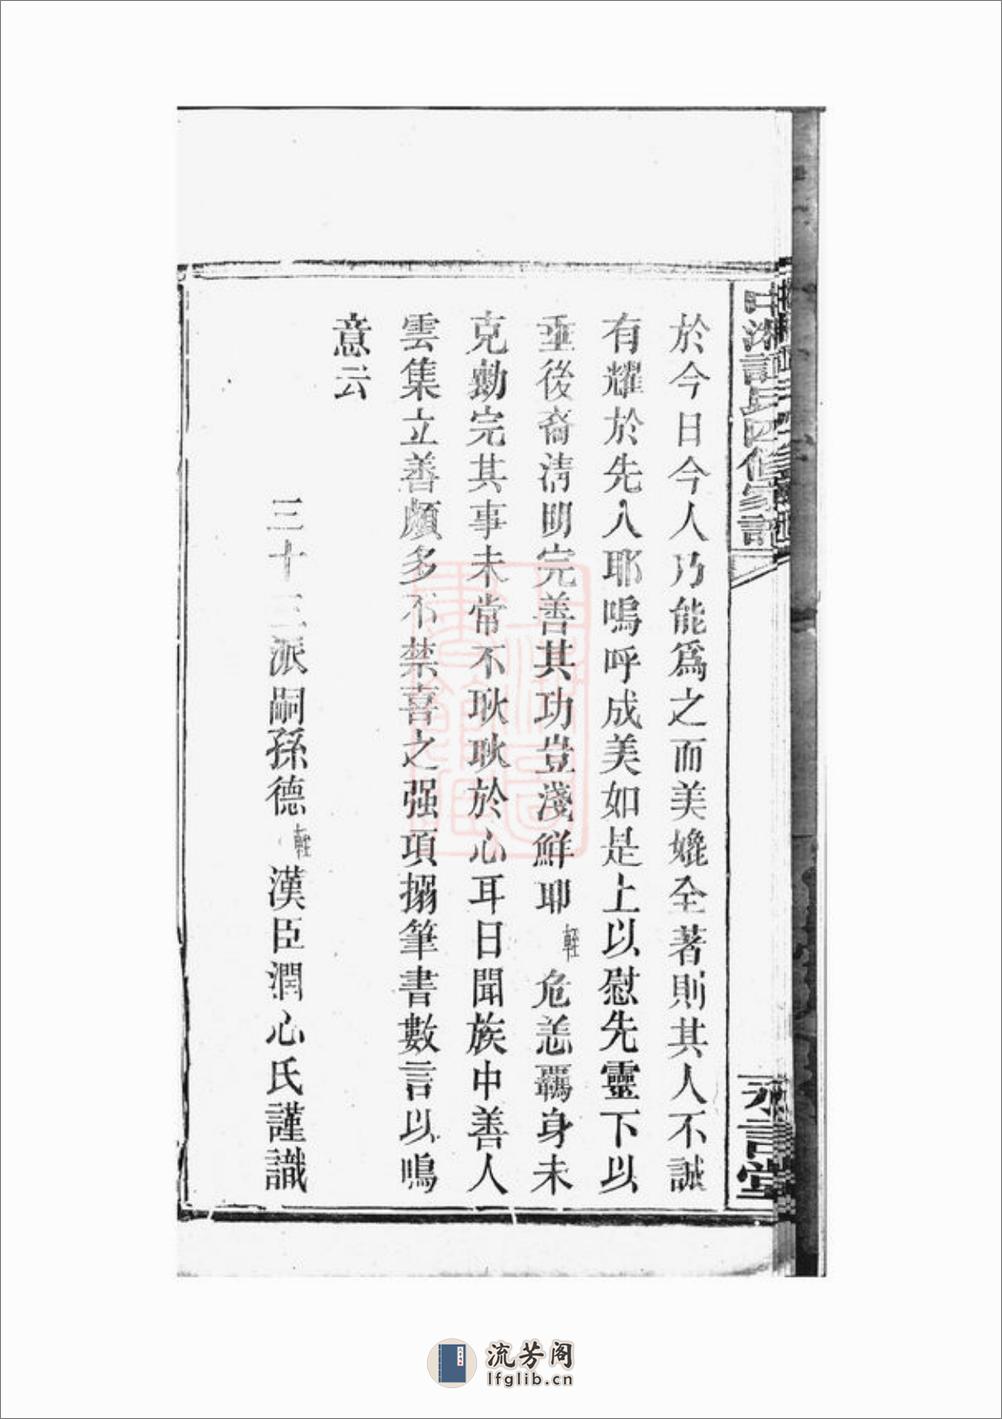 於今日今人乃能爲之而美媲全著則其人不誠
有耀於先人耶嗚呼成美如是上以慰先靈下以
垂後裔淸明完善其功豈淺鮮耶輊危恙羈身未
克勤完其事未常不耿耿於心耳日聞族中善人
雲集立善頗多不禁喜之强項搦筆書數言以鳴
意云
三十三派嗣孫德輊漢臣潤心氏謹識
四修家譜
永言堂
流芳阁
lfglib.cn